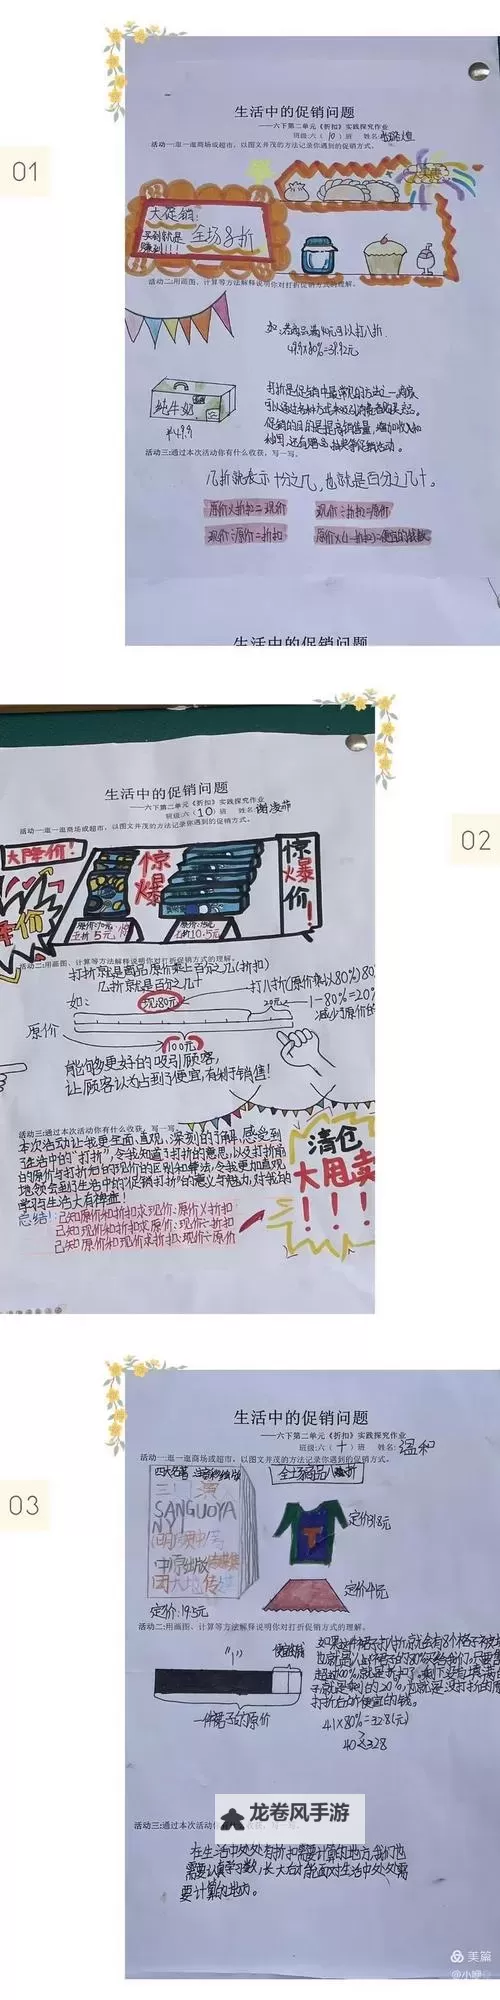 01
生活中的促销问题
——六下第二单元《折扣》实践探究作业
班级:六（10）班 姓名:
活动一:逛一逛商场或超市，以图文并茂的方法记录你遇到的促销方式。
大促销:
买到就是
赚到!!!
全场8折
活动二:用画图、计算等方法解释说明你对打折促销方式的理解。
49.9×80%=39.92元
纯牛奶
¥49.9
打折是促销中最常见的方法之一,商家
促销的目的是提高销售量,增加收入和
活动三:通过本次活动你有什么收获，写一写。
几折就表示十分之几,也就是百分之几十。
原价×折扣=现价
现价÷折扣=原价
现价÷原价=折扣
原价×(1-折扣)=便宜的钱数
生活中的促销问题
02
生活中的促销问题
——六下第二单元《折扣》实践探究作业
班级:六（10）班 姓名:谢凌芾
活动一:逛一逛商场或超市，以图文并茂的方法记录你遇到的促销方式。
大降价!
惊爆
惊爆价!
降价
原价:10元
五折 5元
原价:15元
七折10.5元
活动二:用画图、计算等方法解释说明你对打折促销方式的理解。
打折就是商品原价乘上百分之几(折扣)
几折就是百分之几十
打八折(原价乘以80%)80
如:
现:80元
20元
1-80%=20%
减少了原价的
原价
100元
能够更好的吸引顾客,
让顾客认为占到了便宜,有利于销售!
活动三:通过本次活动你有什么收获，写一写。
本次活动让我更全面,直观,深刻的了解,感受到
了生活中的“打折”,令我知道了打折的意思,以及打折前
的原价与打折后的现价的区别和算法,令我更加直观
地领会到了生活中的“促销打折”的意义与魅力,对我的
学习与生活大有裨益!
总结:已知原价和折扣求现价:原价×折扣
已知现价和折扣求原价:现价÷折扣
已知原价和现价求折扣:现价÷原价
清仓
大甩卖
!!!
03
生活中的促销问题
——六下第二单元《折扣》实践探究作业
班级:六（十）班 姓名:温和
活动一:逛一逛商场或超市，以图文并茂的方法记录你遇到的促销方式。
四大名著
全场商品八折
SANGUOYA
NYI
定价:19.5元
T
定价318元
定价41元
活动二:用画图、计算等方法解释说明你对打折促销方式的理解。
“1”
一件裙子的原价
41×80%=32.8(元)
活动三:通过本次活动你有什么收获，写一写。
在生活中处处有折扣需要计算的地方,我们也
需要认真学习数,长大后才能面对生活中处处需
要计算的地方。
龙卷风手游
美篇